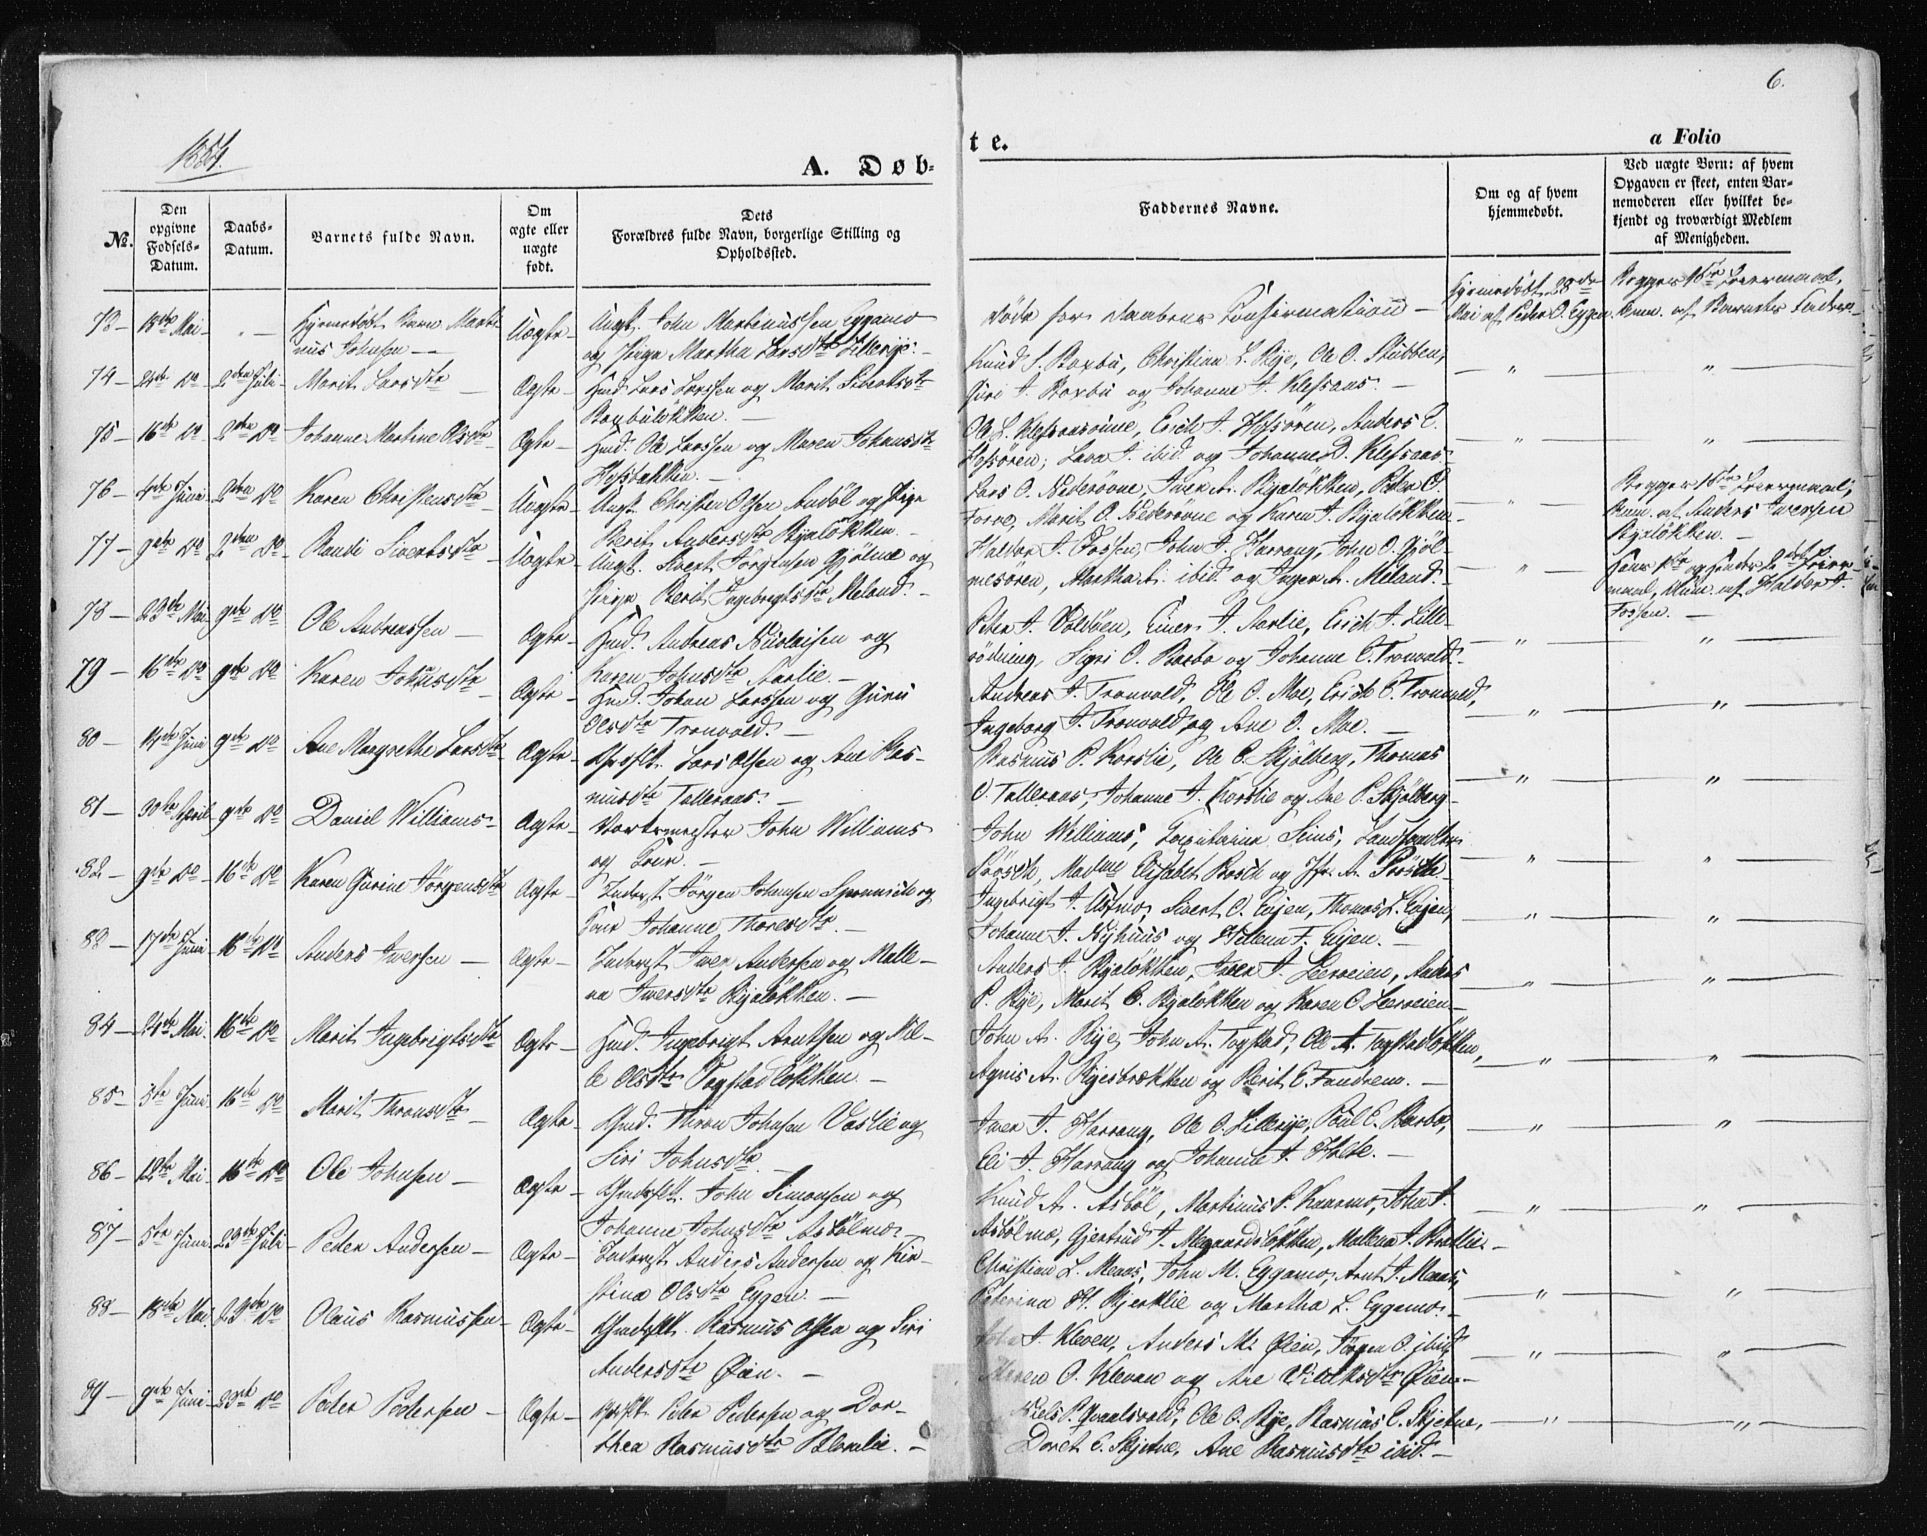 6.
1854.
A. Døb-
te.
a Folio
No.
Den opgivne Fødsels-Datum.
Daabs-Datum.
Barnets fulde Navn.
Om ægte eller uægte født.
Dets Forældres fulde Navn, borgerlige Stilling og Opholdssted.
Faddernes Navne.
Om og af hvem hjemmedøbt.
Ved uægte Børn: af hvem Opgaven er skeet, enten Bar-nemoderen eller hvilket be-kjendt og troværdigt Medlem af Menigheden.
73 – 18de Mai – " – Hjemedøbt Barn Marti-
nus Johnsen — Uægte – Ungk. John Martinussen Eggamo
og Pige Martha Larsdtr Lillerye. –
døde før Daabens Confirmation –
Hjemedøbt 28de
Mai af Peder O. Eggen.
Begges 1ste Leiermaal,
Anm. af Barnets Fader –
74 – Do – 2den Juli – Marit Larsdtr – Ægte – Gmd. Lars Larssen og Marit Sivertsdtr
Boxbuløkken. –
Knud S. Boxbu, Christian L. Rye, Ole O. Stubben,
Guri J. Boxbu og Johanne J. Klefsaas. – " "
75 – 16de Do – 2den Do – Johanne Martine Olsdtr – Ægte – Gmd. Ole Larssen og Maren Johnsdtr
Hofsbakken. –
Ole L. Klefsaas, Erich J. Hofsøren, Anders E.
Hofsøren; J. ibid. og Johanne D. Klefsaas " "
76 – 4de Juni – 2den Do – Karen Christensdtr – Uægte – Ungk. Christen Olsen Asbøl og Pige
Berit Andersdtr Ryeløkken. –
Lars O. Nederøvne, Iver A. Ryeløkken, Peter O.
Forve, Marit O. Nederøvne og Karen J. Ryeløkken – "
Begges 1ste Leiermaal,
Anm. af Anders Iversen
Ryeløkken. –
77 – 9de Do – 2den Do – Randi Sivertsdtr – Uægte – Ungk. Sivert Jørgensen Gjølme og
Pige Berit Ingebrigtsdtr Meland. –
Haldor J. Fossen, John J. Harrang, John O. Gjøl-
mesøren, Martha A. ibid. og Inger A. Meland. – "
Hans 1ste og hendes 2det Leier-
maal, Anm. af Haldor J.
Fossen. –
78 – 23de Mai – 9de Do – Ole Andreassen – Ægte – Gmd. Andreas Nicolaisen og
Karen Johnsdtr Aarlie. –
Peter J. Voldøen, Einer J. Aarlie, Erich J. Lille-
rødning, Sigri O. Barbo og Johanne E. Tronvold. – " "
79 – 16de Do – 9de Do – Karen Johnsdtr – Ægte – Gmd. Johan Larssen og Guru
Olsdtr Tronvold. –
Andreas J. Tronvold, Ole O. Moe, Erich E. Tronvold,
Ingeborg J. Tronvold og Ane O. Moe. – " "
80 – 14de Juni – 9de Do – Ane Margrethe Larsdtr – Ægte – Lars Olsen og Ane Ras-
musdtr Talleraas. –
Rasmus P. Korslie, Ole E. Skjølberg, Thomas
O. Talleraas, Johanne J. Korslie og Ane P. Skjølberg – " "
81 – 30te April – 9de Do – Daniel Williams – Ægte – Værkmester John Williams
og Frue. –
John Williams, Seins, Landhandler
Bösch, Madme Elisabet Bösch og Jfr. A. Bösch – " "
82 – 9de Do – 16de Do – Karen Gurine Jørgensdtr – Ægte – Inderst Jørgen Johansen og
Kone Johanne Thoresdtr. –
Ingebrigt J. Ustmo, Sivert O. Evjen, Thomas L. Evjen,
Johanne J. Nyhuus og Hellena F. Evjen. – " "
83 – 17de Juni – 16de Do – Anders Iversen – Ægte – Inderst Iver Andersen og Malle-
na Iversdtr Ryeløkken. –
Anders J. Ryeløkken, Iver J. Leerveien, Anders
P. Rye, Marit E. Ryeløkken og Karen O. Leerveien – " "
84 – 24de Mai – 16de Do – Marit Ingebrigtsdtr – Ægte – Gmd. Ingebrigt Arntsen og Nil-
le Olsdtr Togstadløkken –
John A. Rye, John A. Togstad, Ole A. Togstadløkken,
Agnis A. Ryesbrækken og Berit E. Fandrem. – " "
85 – 5te Juni – 16de Do – Marit Thronsdtr – Ægte – Gmd. Thron Johnsen Vaslie og
Siri Johnsdtr. –
Iver J. Harrang, Ole O. Lillerye, Poul E. Barbo,
Eli J. Harrang og Johanna J. Holte. – " "
86 – 12te Mai – 16de Do – Ole Johnsen – Ægte – John Simonsen og
Johanne Johnsdtr Asbølmo –
Knud A. Asbøl, Martinus P. Kaarmo, John J.
Asbølmo, Gjertrud J. Megaardsløkken, Mallena J. Bratlie – " "
87 – 5te Juni – 23de Juli – Peder Andersen – Ægte – Inderst Anders Andersen og Kir-
stina Olsdtr Eggen –
Christian L. Meaas, John M. Eggamo, Arnt J. Meaas,
Peterina H. Bjerklie og Martha L. Eggamo – " "
88 – 18de Mai – 23de Do – Olaus Rasmussen – Ægte – Rasmus Olsen og Siri
Andersdtr Øien. –
J. Kleven, Anders M. Øien, Jørgen O. ibid
Maren O. Kleven og Ane Øien – " "
89 – 9de Juni – 23de Do – Peder Pedersen – Ægte – Peder Pedersen og Dor-
thea Rasmusdtr Blomlie. –
Niels P. Qvaalsvold, Ole O. Rye, Rasmus E. Skjetne,
Doret E. Skjetne, Ane Rasmusdtr ibid. – " "